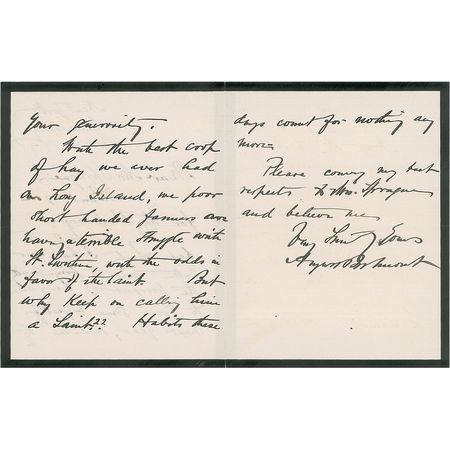 Your generosity.
With the best crop
of hay we ever had
on Long Island, we poor
short handed farmers are
having a terrible struggle with
St. Swithin, with the odds in
favor of the Saint. But
why keep on calling him
a Saint?? Habits these
days count for nothing any
more.
Please convey my best
respects to Mrs. Sprague
and believe me
Very Truly Yours
August Belmont